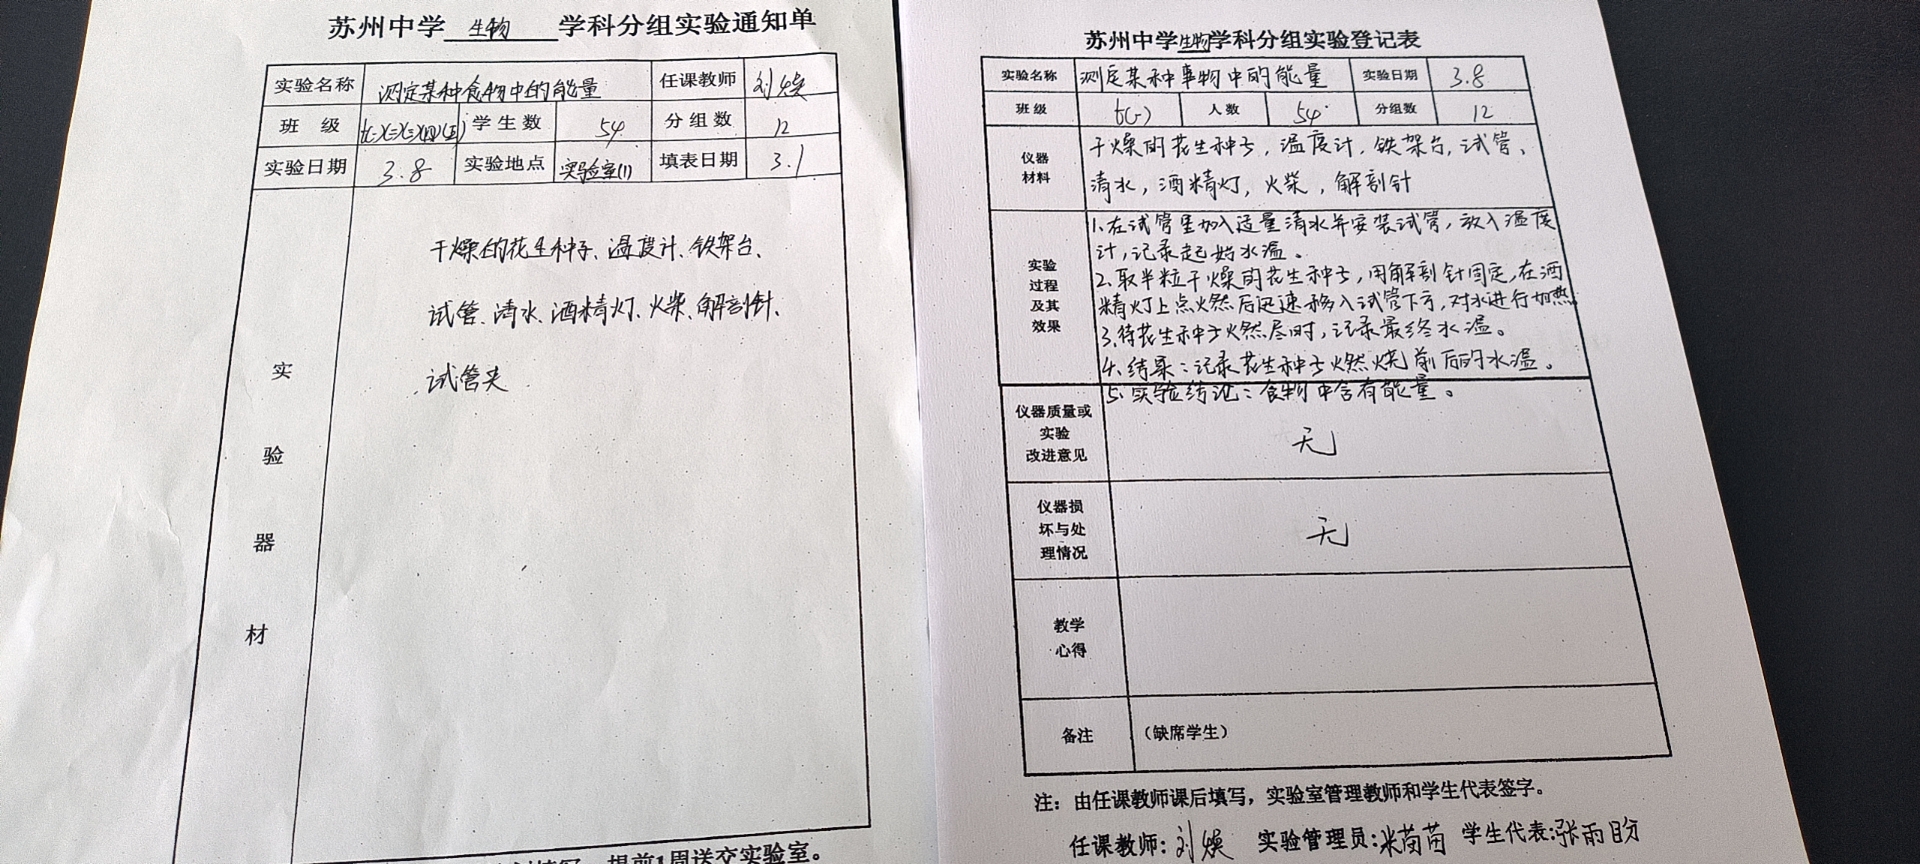 苏州中学 生物 学科分组实验通知单
实验名称 测定某种食物中的能量 任课教师 刘焕
班 级 七(一)(二)(三)(四)(五) 学生数 54 分组数 12
实验日期 3.8 实验地点 实验室(1) 填表日期 3.1
实验器材
干燥的花生种子、温度计、铁架台、
试管、清水、酒精灯、火柴、解剖针、
试管夹
提前1周送交实验室。
苏州中学生物学科分组实验登记表
实验名称 测定某种事物中的能量 实验日期 3.8
班级 七(一) 人数 54 分组数 12
仪器
材料
干燥的花生种子，温度计，铁架台，试管、
清水，酒精灯，火柴，解剖针
实验
过程
及其
效果
1.在试管里加入适量清水并安装试管，放入温度
计，记录起始水温。
2.取半粒干燥的花生种子，用解剖针固定，在酒
精灯上点火然后迅速移入试管下方，对水进行加热
3.待花生种子火然尽时，记录最终水温。
4.结果：记录花生种子火燃烧前后的水温。
5.实验结论：食物中含有能量。
仪器质量或
实验
改进意见
无
仪器损
坏与处
理情况
无
教学
心得
备注 （缺席学生）
注：由任课教师课后填写，实验室管理教师和学生代表签字。
任课教师：刘焕 实验管理员：米茵茵 学生代表：张雨盼